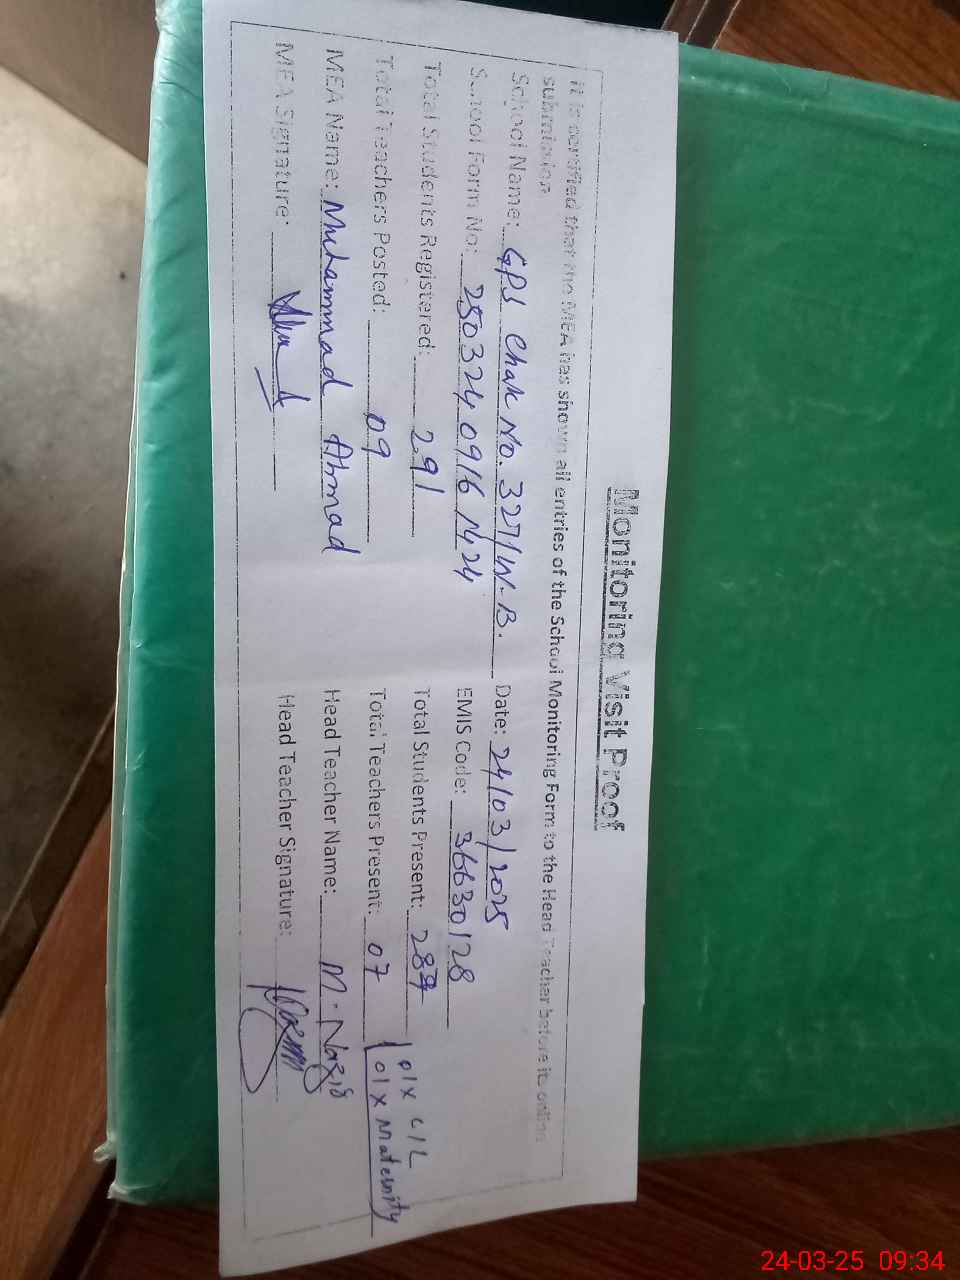 Monitoring Visit Proof
It is certified that the MEA has shown all entries of the School Monitoring Form to the Head Teacher before its online
submission.
School Name: GPS Chak No. 327/W.B. Date: 24/03/2025
School Form No: 250324 0916 1424 EMIS Code: 36630128
Total Students Registered: 291 Total Students Present: 287
Total Teachers Posted: 09 Total Teachers Present: 07 01 x C/L
01 x Maternity
MEA Name: Muhammad Ahmad Head Teacher Name: M. Nazir
MEA Signature: Head Teacher Signature:
24-03-25 09:34